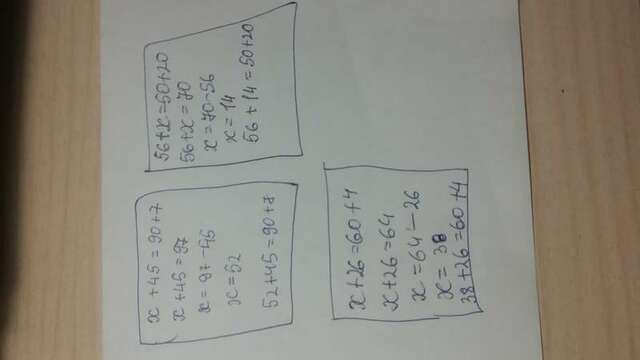 x + 45 = 90 + 7
x + 45 = 97
x = 97 - 45
x = 52
52 + 45 = 90 + 7
56 + x = 50 + 20
56 + x = 70
x = 70 - 56
x = 14
56 + 14 = 50 + 20
x + 26 = 60 + 4
x + 26 = 64
x = 64 - 26
x = 38
38 + 26 = 60 + 4